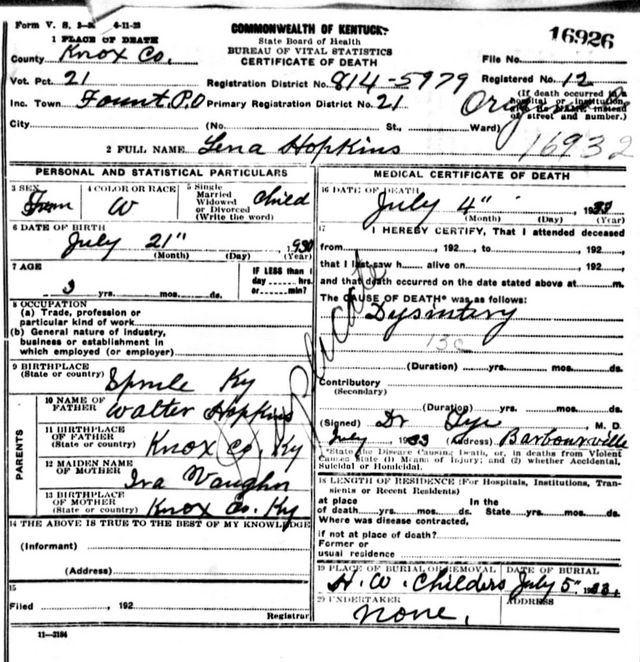 Form V. S. 4-11-28
COMMONWEALTH OF KENTUCKY
State Board of Health
BUREAU OF VITAL STATISTICS
CERTIFICATE OF DEATH
16926
1 PLACE OF DEATH
County Knox Co.
File No.
Vot. Pct. 21
Registration District No. 814-5979
Registered No. 12
Inc. Town Fount P.O
Primary Registration District No. 21
(If death occurred in a hospital or institution
of street and number.)
City
(No. St., Ward)
2 FULL NAME Lena Hopkins
16932
PERSONAL AND STATISTICAL PARTICULARS
3 SEX Fem
4 COLOR OR RACE W
5 Single
Married
Widowed
or Divorced
(Write the word)
Child
6 DATE OF BIRTH
July 21" 1930
(Month) (Day) (Year)
7 AGE
yrs. mos. ds.
IF LESS than 1
day hrs.
or min?
8 OCCUPATION
(a) Trade, profession or
particular kind of work
(b) General nature of industry,
business or establishment in
which employed (or employer)
9 BIRTHPLACE
(State or country) Sprule Ky
PARENTS
10 NAME OF
FATHER Walter Hopkins
11 BIRTHPLACE
OF FATHER
(State or country) Knox Co. Ky
12 MAIDEN NAME
OF MOTHER Iva Vaughn
13 BIRTHPLACE
OF MOTHER
(State or country) Knox Co. Ky
14 THE ABOVE IS TRUE TO THE BEST OF MY KNOWLEDGE
(Informant)
(Address)
15
Filed , 192
Registrar
11-3184
Duplicate
MEDICAL CERTIFICATE OF DEATH
16 DATE OF DEATH
July 4" 1933
(Month) (Day) (Year)
17 I HEREBY CERTIFY, That I attended deceased
from , 192 , to , 192 ,
that I last saw h alive on , 192 ,
and that death occurred on the date stated above at m.
The CAUSE OF DEATH* was as follows:
Dysintary
(Duration) yrs. mos. ds.
Contributory
(Secondary)
(Duration) yrs. mos. ds.
(Signed) Dr Dye , M. D.
July 1933 (Address) Barbourville
*State the Disease Causing Death, or, in deaths from Violent
Causes state (1) Means of Injury; and (2) whether Accidental,
Suicidal or Homicidal.
18 LENGTH OF RESIDENCE (For Hospitals, Institutions, Tran-
sients or Recent Residents)
at place In the
of death yrs. mos. ds. State yrs. mos. ds.
Where was disease contracted,
if not at place of death?
Former or
usual residence
19 PLACE OF BURIAL OR REMOVAL
DATE OF BURIAL
H. W. Childers July 5" 1933.
20 UNDERTAKER
ADDRESS
none.